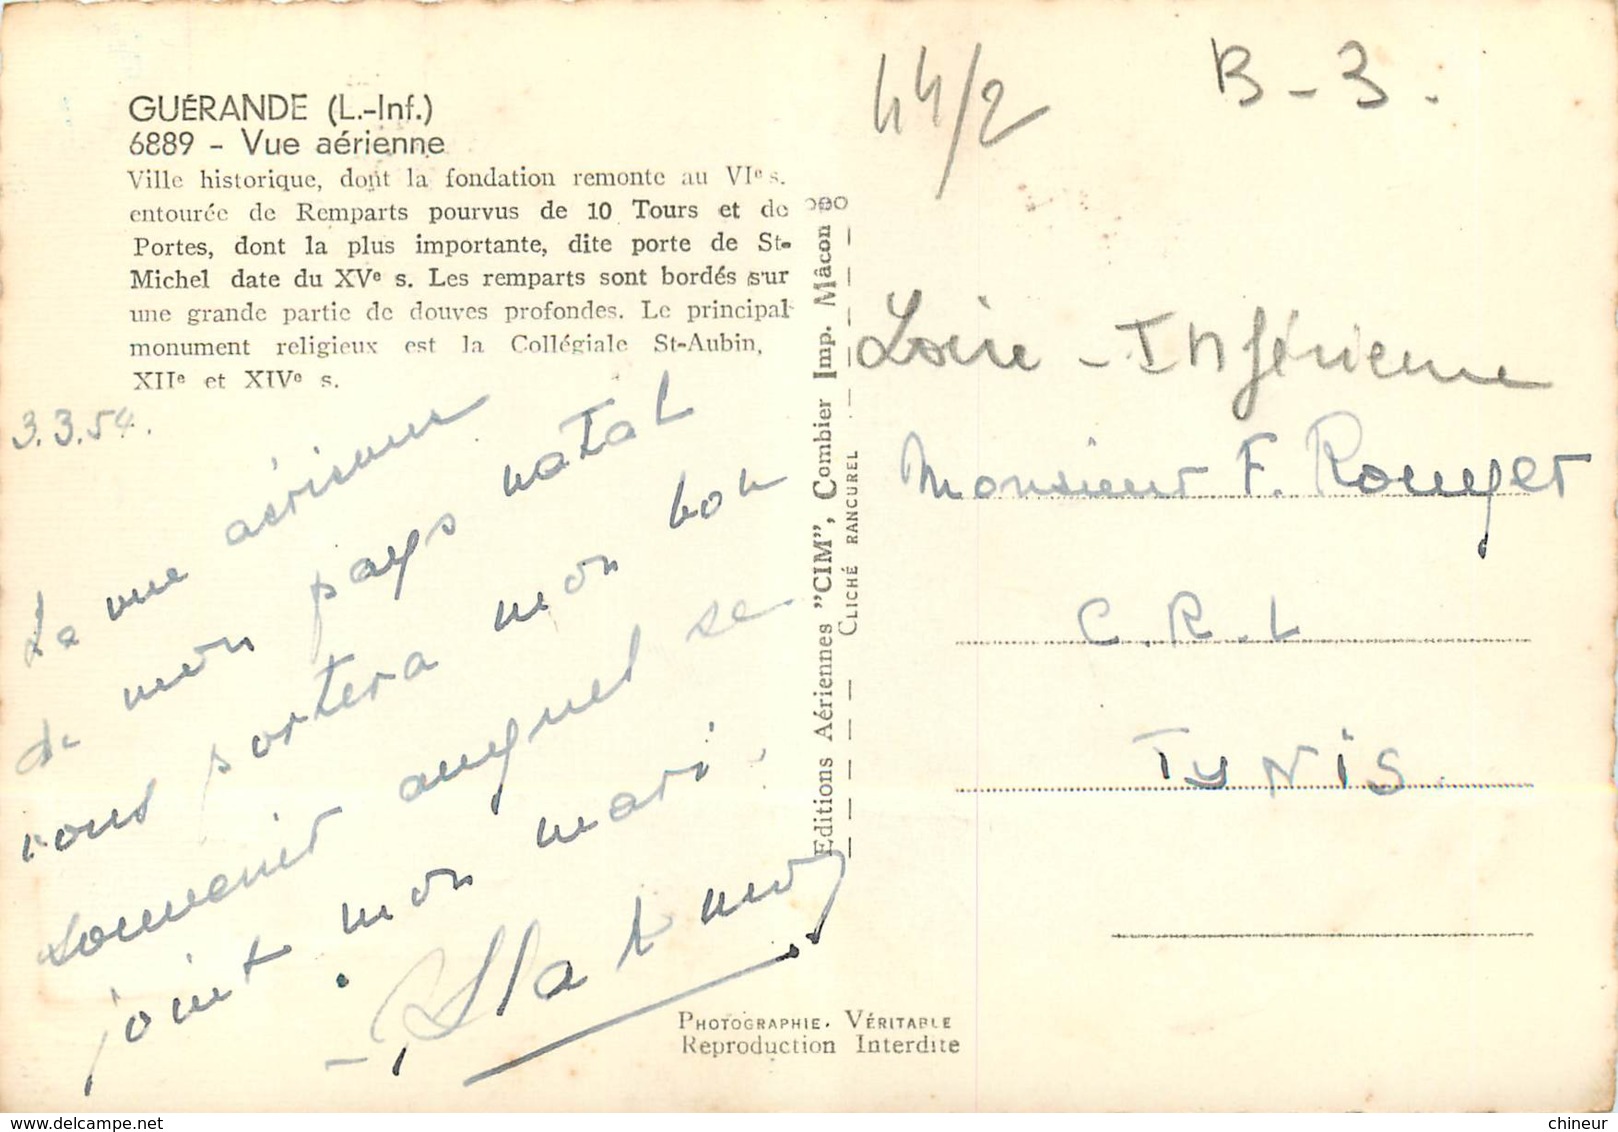 GUÉRANDE (L.-Inf.)
6889 - Vue aérienne
Ville historique, dont la fondation remonte au VIe s.
entourée de Remparts pourvus de 10 Tours et de
Portes, dont la plus importante, dite porte de St-
Michel date du XVe s. Les remparts sont bordés sur
une grande partie de douves profondes. Le principal
monument religieux est la Collégiale St-Aubin,
XIIe et XIVe s.
3.3.54.
La vue aérienne
de mon pays natal
vous portera mon bon
souvenir auquel se
joint mon mari.
Editions Aériennes "CIM", Combier Imp. Mâcon
CLICHÉ RANCUREL
44/2
B-3.
Loire-Inférieure
Monsieur F. Rouget
C.R.L
TUNIS.
PHOTOGRAPHIE VÉRITABLE
Reproduction Interdite
chineur